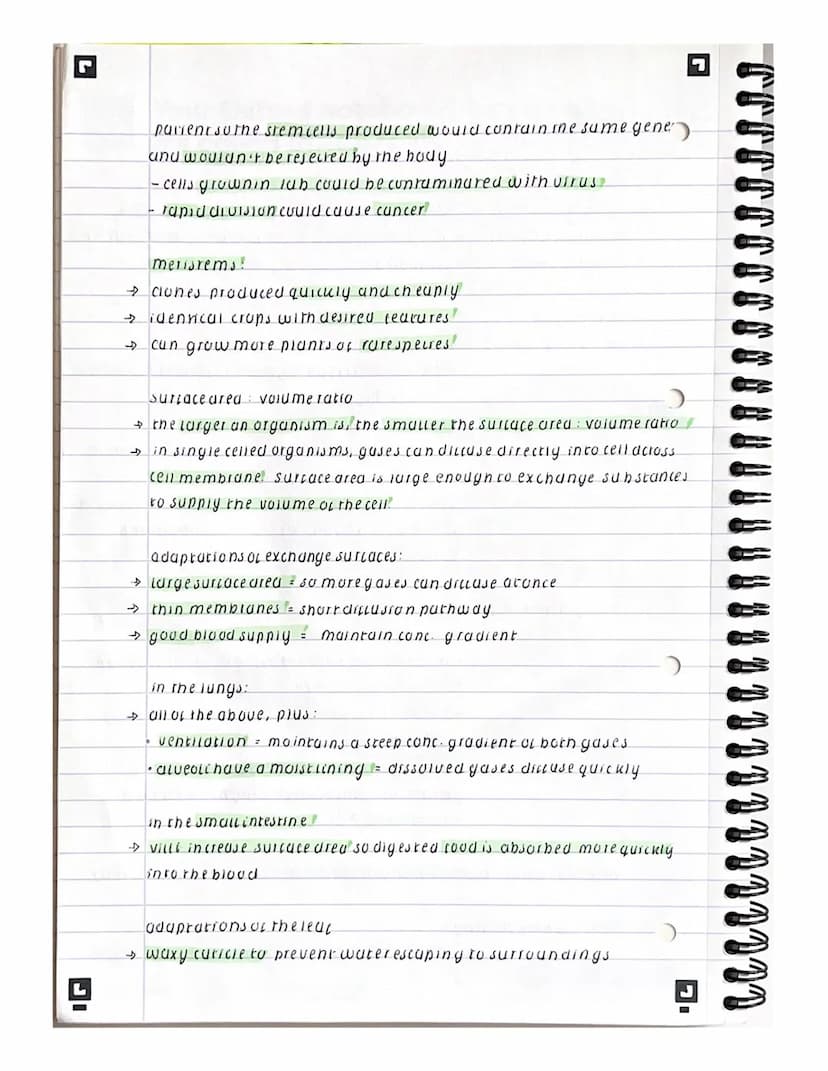 patient so the stem cells produced would contain the same gene
and wouldn't be rejected by the body
- cells grown in lab could be contaminated with virus
- rapid division could cause cancer
meristems:
→ clones produced quickly and cheaply
→ identical crops with desired features
→ can grow more plants of rare species
surface area : volume ratio
→ the larger an organism is, the smaller the surface area : volume ratio
→ in single celled organisms, gases can diffuse directly into cell across
cell membrane. surface area is large enough to exchange substances
to supply the volume of the cell
adaptations of exchange surfaces:
→ large surface area = so more gases can diffuse at once
→ thin membranes = short diffusion pathway
→ good blood supply = maintain conc. gradient
in the lungs:
→ all of the above, plus:
• ventilation = maintains a steep conc. gradient of both gases
• alveoli have a moist lining = dissolved gases diffuse quickly
in the small intestine
→ villi increase surface area so digested food is absorbed more quickly
into the blood
adaptations of the leaf
→ waxy cuticle to prevent water escaping to surroundings